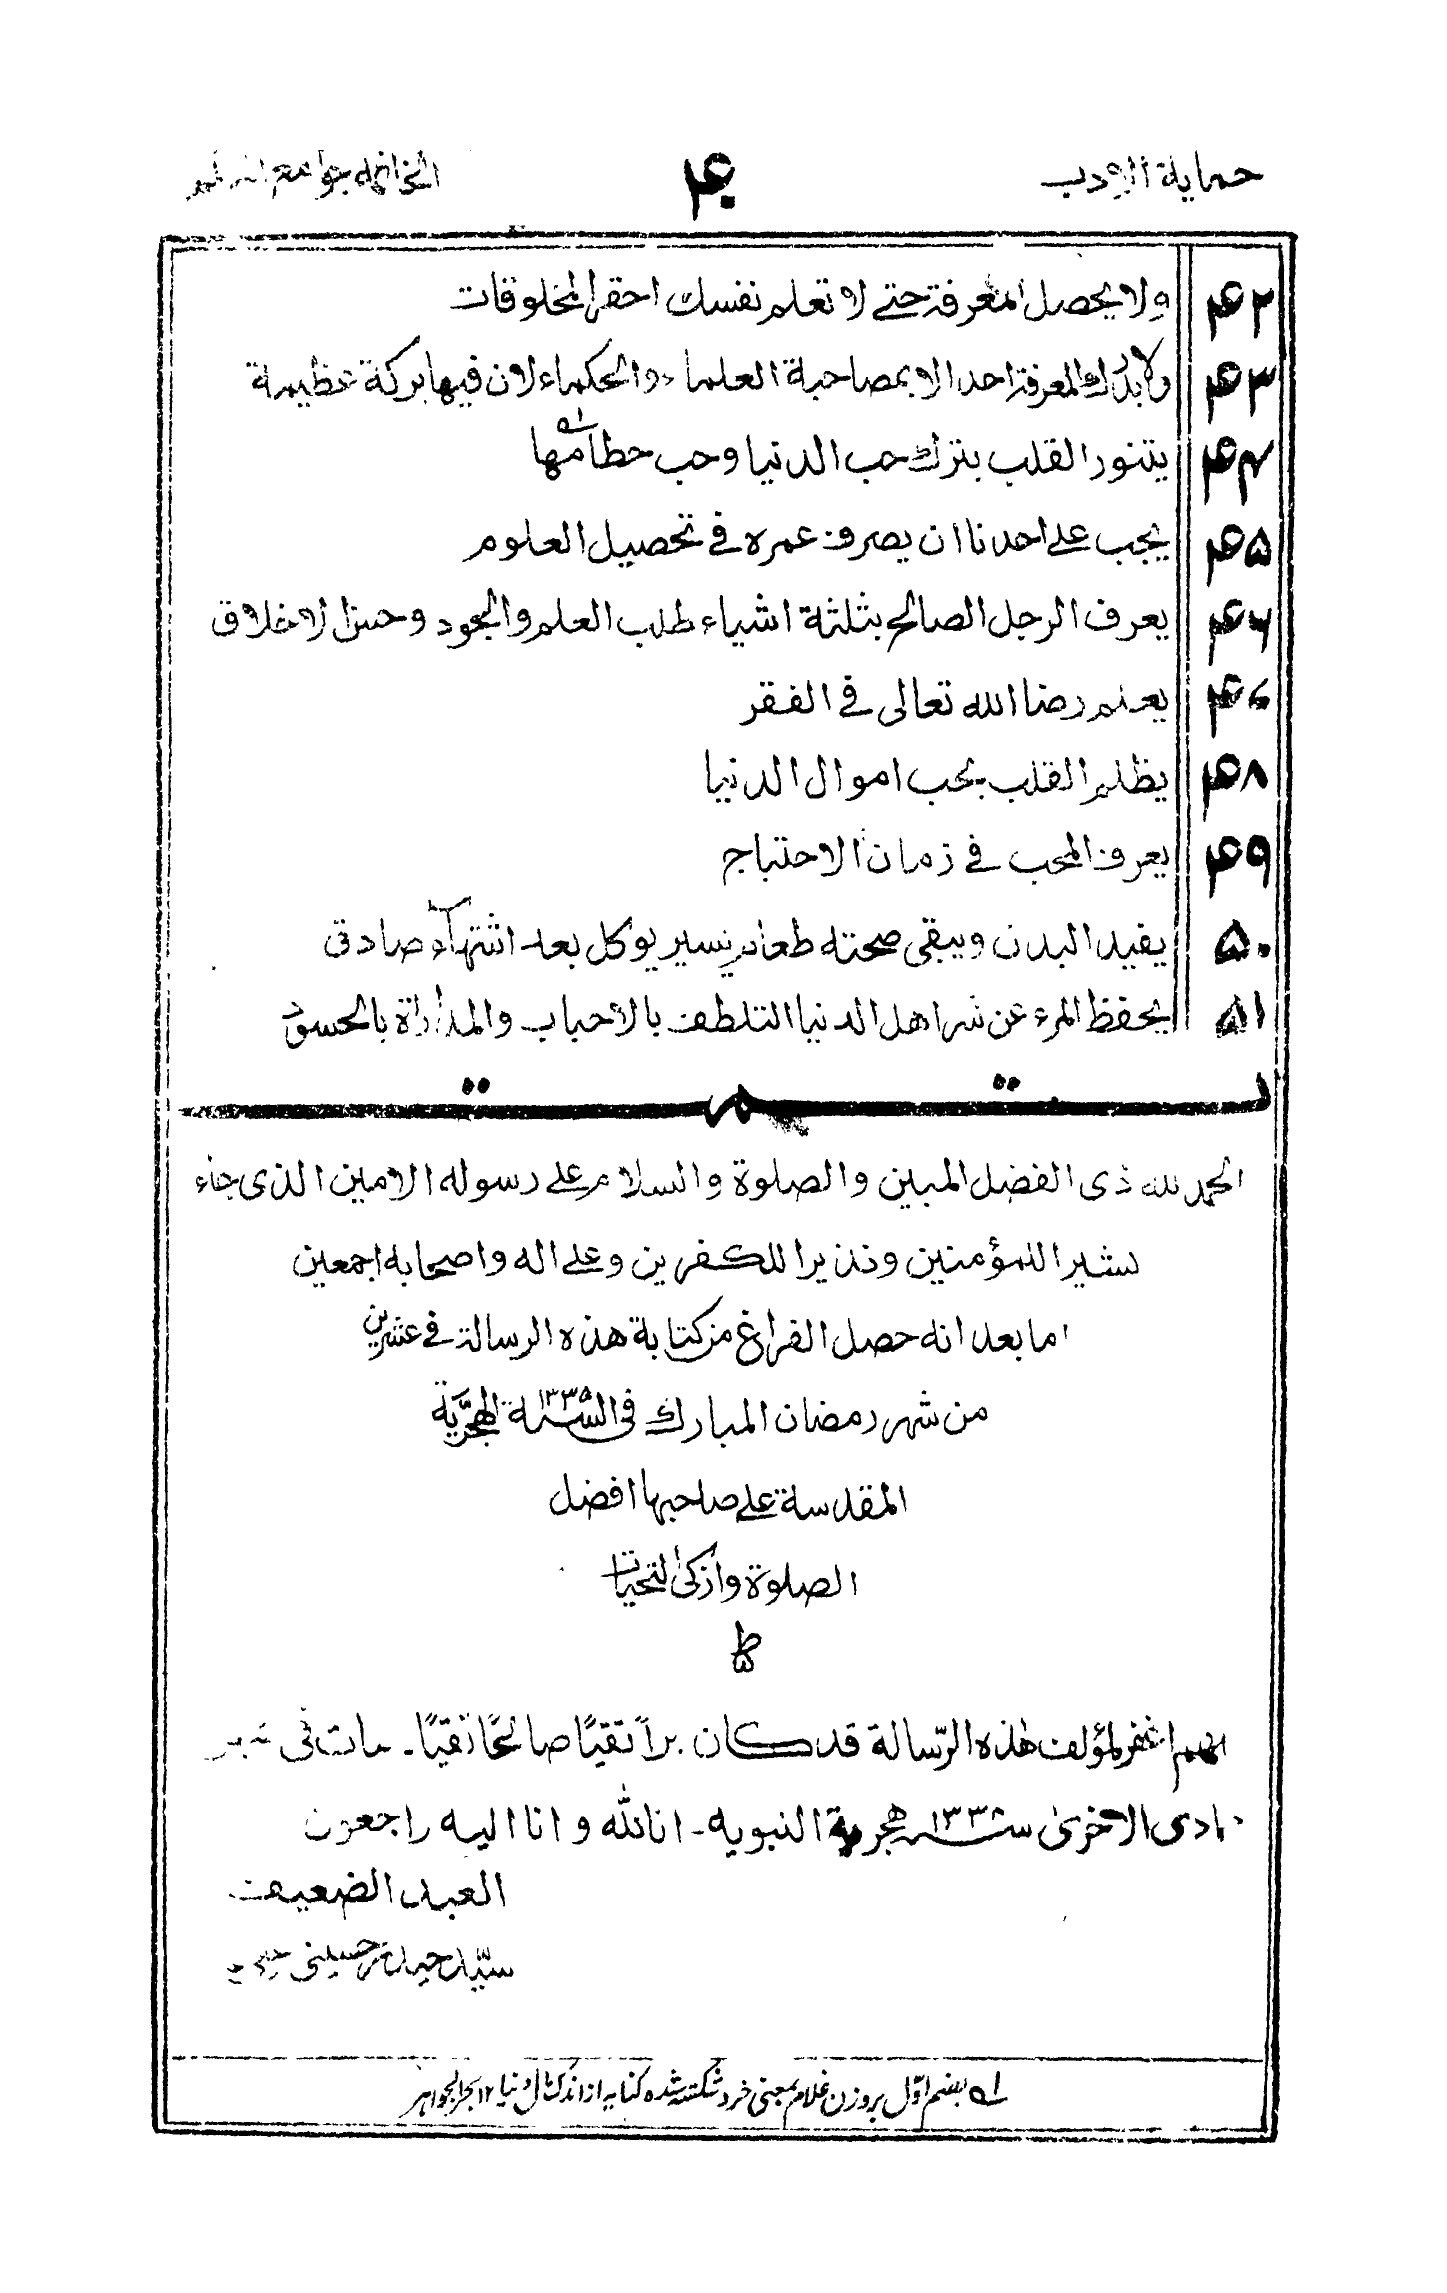 حماية الادب ۴۰ الخاتمة جوامع
۴۲ ولا يحصل المعرفة حتى لا تعلم نفسك احقر المخلوقات
۴۳ ولا يدرك المعرفة احد الا بمصاحبة العلماء والحكماء لان فيها بركة عظيمة
۴۴ يتنور القلب بترك حب الدنيا وحب حطامها
۴۵ يجب على احدنا ان يصرف عمره فى تحصيل العلوم
۴۶ يعرف الرجل الصالح بثلثة اشياء طلب العلم والجود وحسن الاخلاق
۴۷ يعلم رضا الله تعالى فى الفقر
۴۸ يظلم القلب بحب اموال الدنيا
۴۹ يعرف المحب فى زمان الاحتياج
۵۰ يفيد البدن ويبقى صحته طعام يسير يوكل بعد اشتهاء صادق
۵۱ يحفظ المرء عن شر اهل الدنيا التلطف بالاحباب والمداراة بالحسود
تمت
الحمد لله ذى الفضل المبين والصلوة والسلام على رسوله الامين الذى جاء
بشيرا للمؤمنين ونذيرا للكفرين وعلى اله واصحابه اجمعين
اما بعد انه حصل الفراغ من كتابة هذه الرسالة فى عشرين
من شهر رمضان المبارك فى السنة ۱۳۳۵ الهجرية
المقدسة على صاحبها افضل
الصلوة وازكى التحيات
ط
اللهم اغفر لمؤلف هذه الرّسالة قد كان براً تقيًا صالحًا نقيًا۔ مات فى
الاخرىٰ سنہ ۱۳۳۸ هجرية النبويه۔ انا لله وانا اليه راجعون
العبد الضعيف
سيّد حيدر حسينى
له بضم اوّل بر وزن غلام بمعنى خرد شکسته شده کنایه از اندک مال دنیا ۱۲ بحر الجواهر